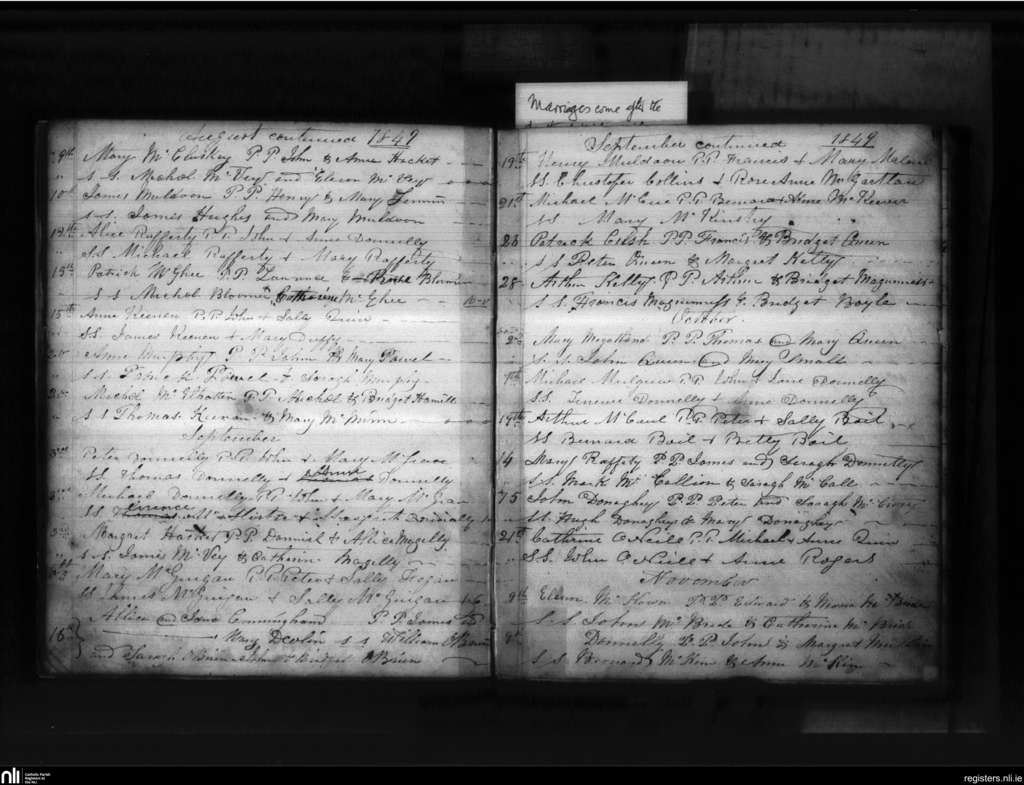 Marriages come after the
August continued 1849
9th Mary McCluskey P P John & Anne Hacket
S.S Michol McVey and Elenn McVey
10th James Muldoon P P. Henry & Mary
s-s. James Hughes and Mary Muldoon
12th Alice Rafferty P P John & Anne Donnelly
S.S Michael Rafferty & Mary Rafferty
15th Patrick McGhee P P Laurence & Bloomer
S S Michol Bloomer Catherine McGhee
15th Anne Keenen P. P. John & Sally Quin
SS. James Keenen & Mary Duffy
Anne Murphy P P John & Mary Powel
s s Patrick Powel & Saragh Murphy
Michol McElhatton P P Michol & Bridget Hamill
s s Thomas Kieran & Mary McMinn
September
Peter Donnelly P. P. John & Mary
SS Thomas Donnelly & Donnelly
Michael Donnelly P P John & Mary
SS & Margaret
Margret Hacket P P Daniel & Allice Magelly
S-S. James McVey & Catherine Magelly
Mary McGuigan P. P. Peter & Sally Fegan
SS James McGuigan & Sally McGuigan
Allice and Jane Cunningham P P James &
16 Mary Devlin s s William O'Brien
and Saragh O'Brien John & Bridget O'Brien
September continued 1849
19th Henry Muldoon P. P. Francis & Mary
SS. Christopher Collins & Rose Anne McGartlan
21st Michael McCue P. P Bernard & Anne McKeever
SS Mary McKinsry
23 Patrick Cush P. P. Francis & Bridget Queen
s s Peter Queen & Margret Kelly
28 Arthur Kelly P P. Arthur & Bridget Maguinness
S. S. Francis Maguinness & Bridget Boyle
October
2nd Mary Megolland P. P Thomas and Mary Queen
S. S. John Queen and Mary Small
7th Michael Mulgrew P P John & Jane Donnelly
SS. Terence Donnelly & Anne Donnelly
14th Arthur McCaul P. P. Peter & Sally Boil
SS Bernard Boil & Betty Boil
14 Mary Rafferty P P. James and Saragh Donnelly
s. s. Mark McCallion & Saragh McCall
15 John Donaghey P. P. Peter and Saragh
S. S. Hugh Donaghey & Mary Donaghey
21st Catherine O Neill P. P. Michael & Anne Quin
S. S. John O Neill & Anne Rogers
November
9th Ellenn McKown P. P Edward & Maria McBride
S. S John McBride & Catherine McBride
Donnelly P. P John & Margret
S S Bernard McKew & Anne
nli Catholic Parish
Registers at
the NLI
registers.nli.ie